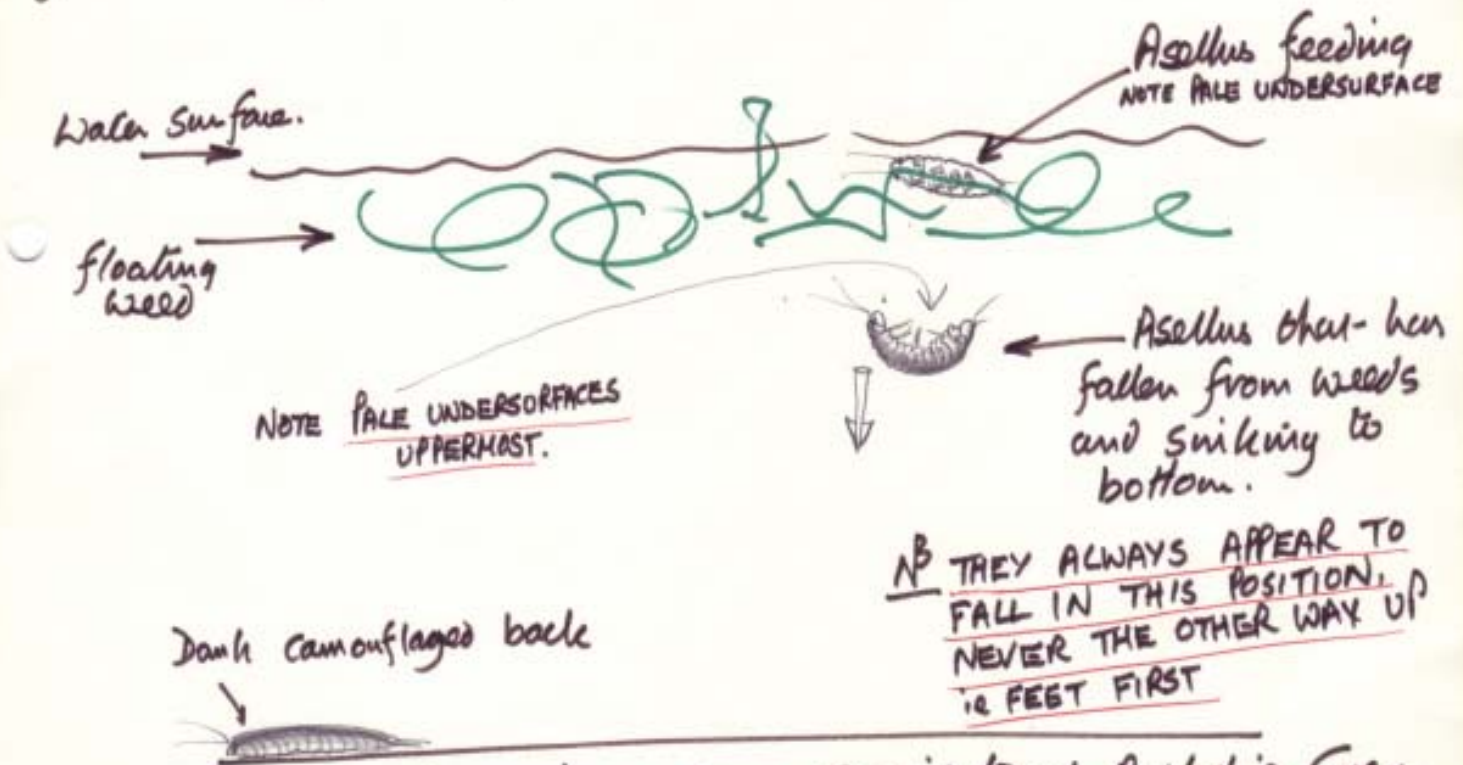 Asellus feeding
NOTE PALE UNDERSURFACE
Water surface.
floating
weed
Asellus that has
fallen from weeds
and sinking to
bottom.
NOTE PALE UNDERSURFACES
UPPERMOST.
NB THEY ALWAYS APPEAR TO
FALL IN THIS POSITION.
NEVER THE OTHER WAY UP
ie FEET FIRST
Dark camouflaged back